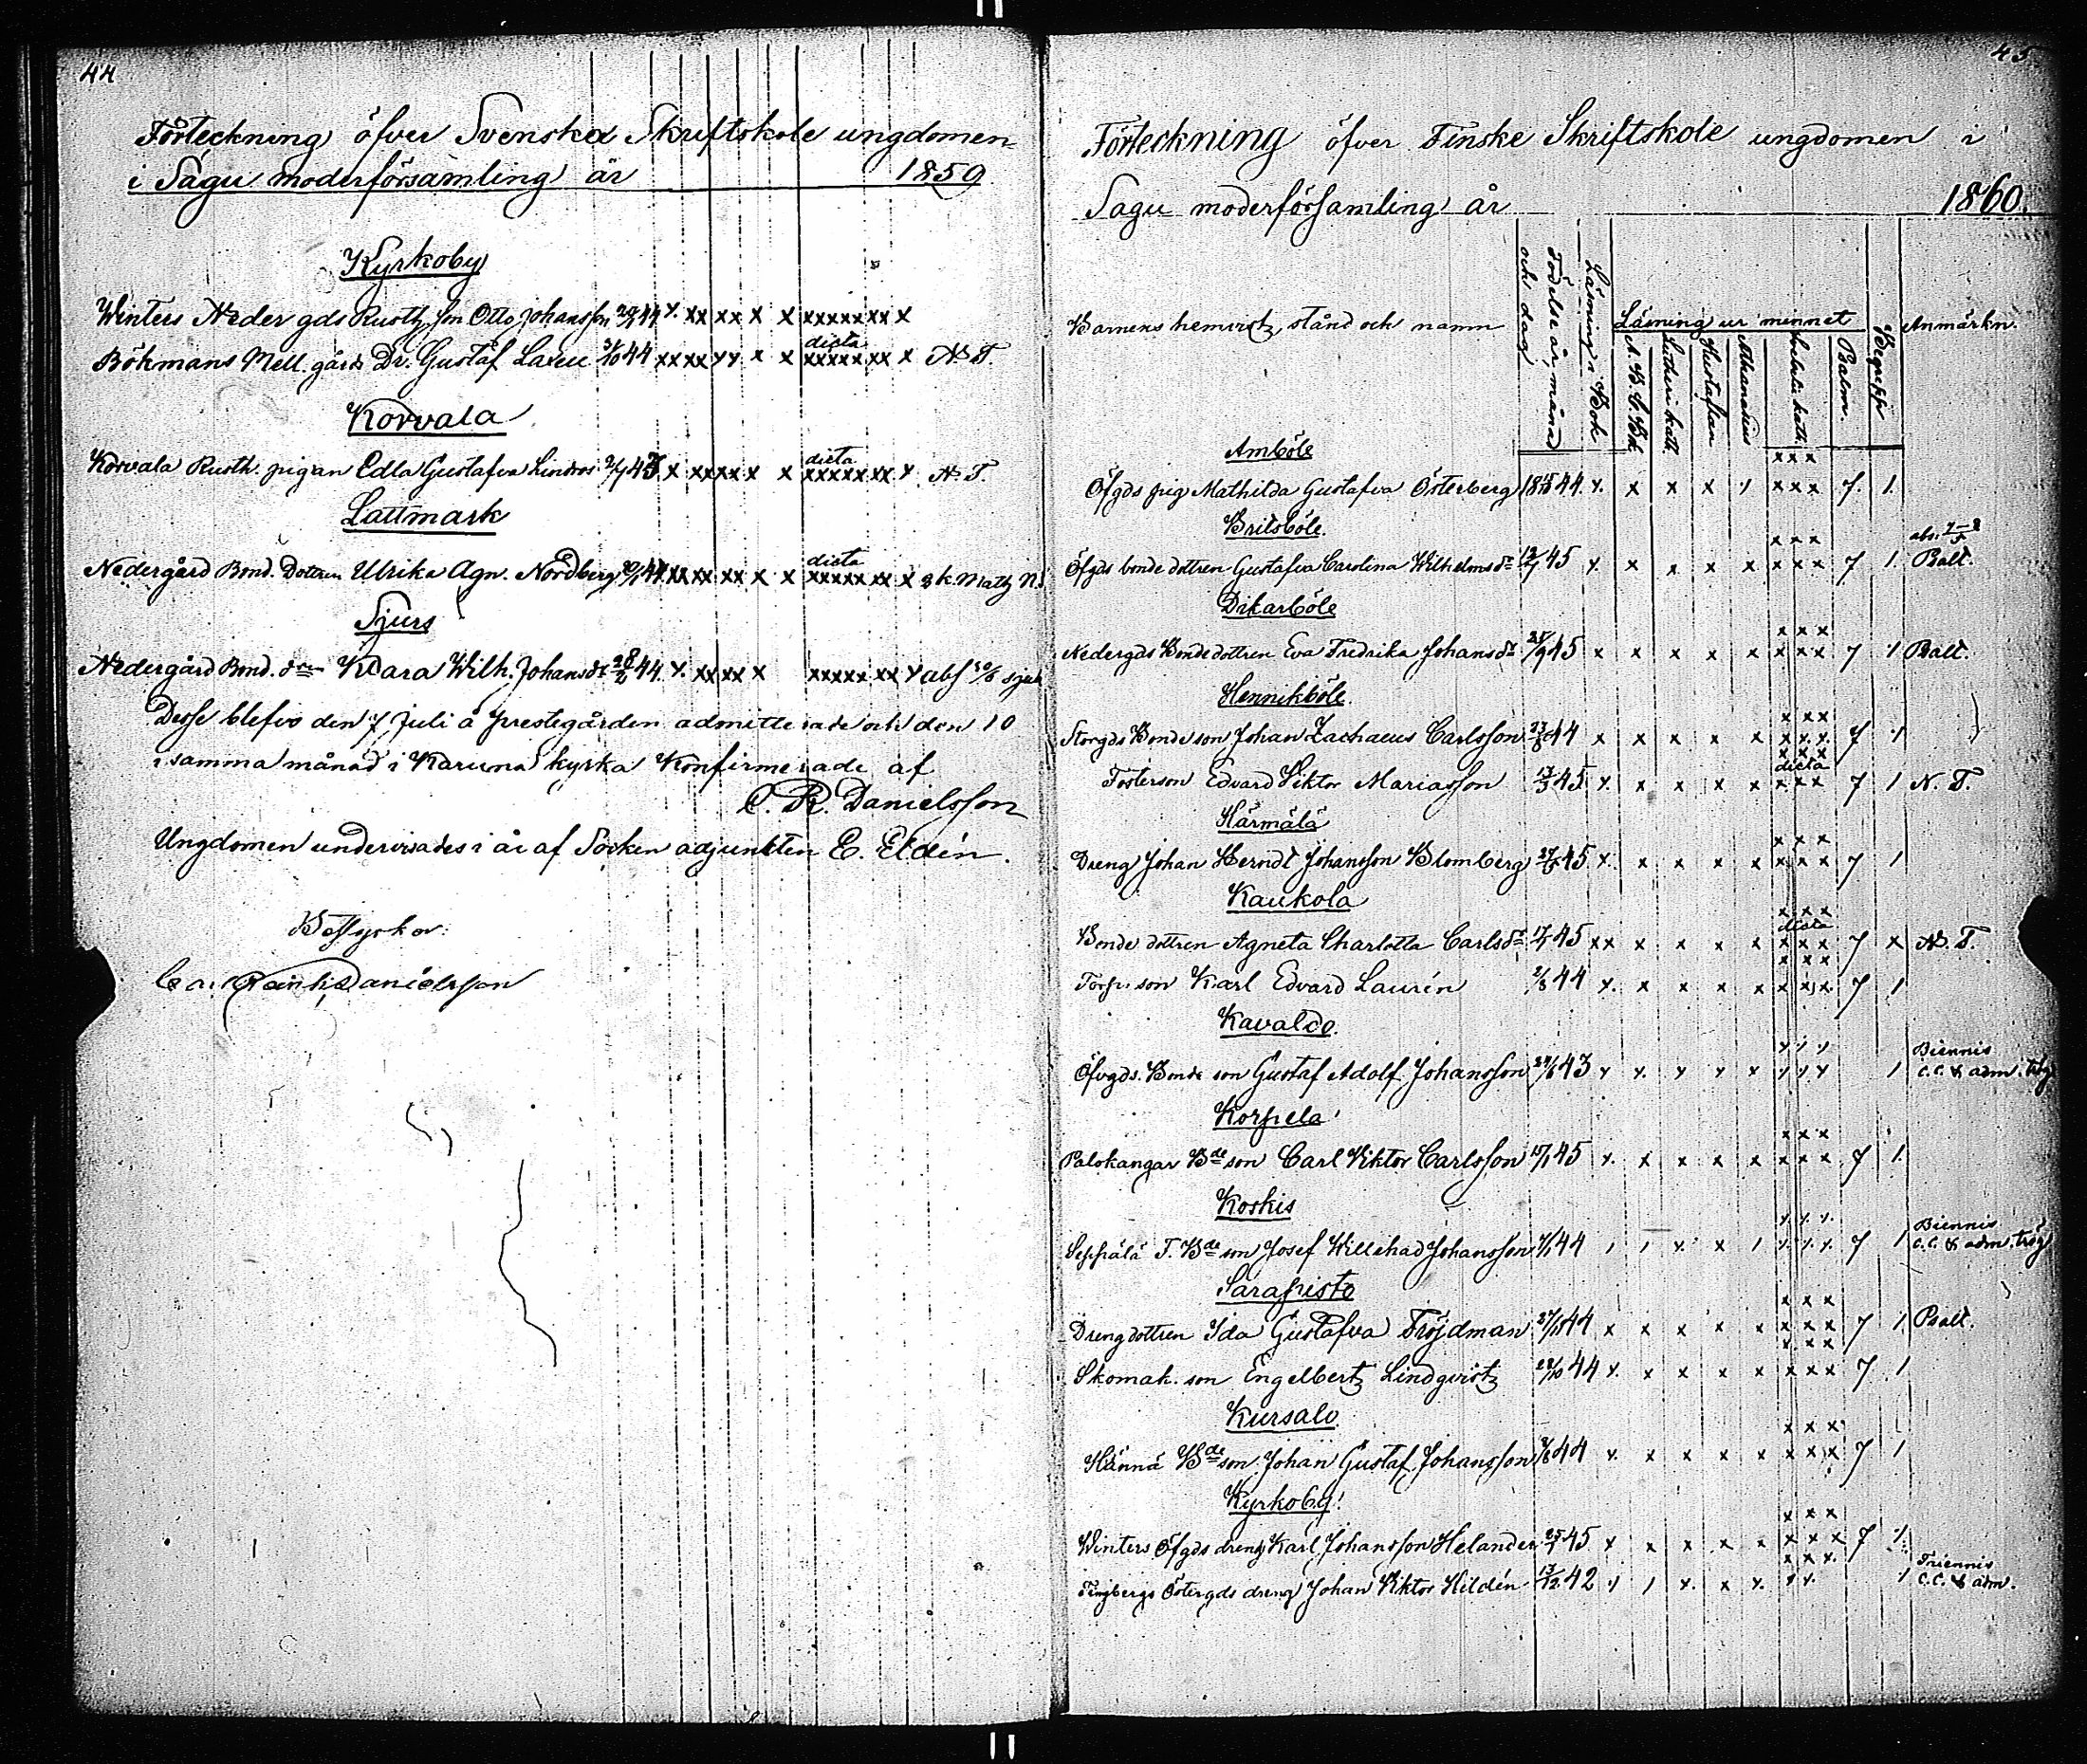 44
Förteckning öfver Svenska Skriftskole ungdomen
i Sagu moderförsamling år 1859
Kyrkoby
Winters Neder gds Rusth. son Otto Johansson 44 x xx xx x x xxxxx xx x
dicta
Bökmans Mell. gårds Dr. Gustaf Laren 3/10 44 xx xx xx x x xxxxx xx x N. T.
Korvala
dicta
Korvala Rusth. pigan Edla Gustafva Lindros 43 x xx xx x x xxxxx xx x N. T.
Lattmark
dicta
Nedergård Bond. Dottren Ulrika Agn. Nordberg 44 xx xx xx x x xxxxx xx x
Sjurs
Nedergård Bond. dren Klara Wilh. Johansdr 44 x. xx xx x xxxxx xx x abs sjuk
Desse blefvo den 7 Juli å prestegården admitterade och den 10
i samma månad i Karuna kyrka Konfirmerade af
C. R. Danielsson
Ungdomen undervisades i år af Socken adjunkten E. Eldén.
Danielsson
45
Förteckning öfver Finske Skriftskole ungdomen i
Sagu moderförsamling år 1860.
Barnens hemvist, stånd och namn
Födelse år, månad
och dag
Läsning i Bok
Läsning ur minnet
A. B. C. Bok
Lutheri kat.
Hustaflan
Athanasius
kat.
Psalm.
Begrepp
Anmärkn.
Amböle
x x x
Öfgds pig Mathilda Gustafva Österberg 44. x. x x x x x x x 7. 1.
Britsböle.
x x x
Öfgds bonde dottren Gustafva Carolina Wilhelmsdr 45 x. x x x x x x x 7 1 Psalt.
Dikarböle
x x x
Nedergds Bonde dottren Eva Fredrika Johansdr 45 x x x x x x x x 7 1 Psalt.
Hennikböle.
x x x
Storgds Bonde son Johan Zachaeus Carlsson 44 x x x x x x x x 7 1
x x x
dicta
Fosterson Edvard Viktor Mariasson 45 x. x x x x x x x 7 1 N. T.
Härmälä
x x x
Dreng Johan Herndt Johansson Blomberg 45 x. x x x x x x x 7 1
Kaukola
x x x
dicta
Bonde dottren Agneta Charlotta Carlsdr 45 xx x x x x x x x 7 x N. T.
x x x
Torp. son Karl Edvard Laurén 2/8 44 x. x x x x x x x 7 1
Kavaldo.
x x x
Öfvgds. Bonde son Gustaf Adolf Johansson 43 x x. x x x x x x 1 Biennis
C. C. & adm.
Korpela
x x x
Palokangar Bde son Carl Viktor Carlsson 45 x. x x x x x x x 7 1.
Koskis
x x x
Seppälä T. Bde son Josef Willehad Johansson 44 1 1 x. x 1 x. x. x. 7 1 Biennis
C. C. & adm. trög
Sarapisto
x x x
Drengdottren Ida Gustafva Fröjdman 44 x x x x x x x x 7 1 Psalt.
x x x
Skomak. son Engelbert Lindqvist 28/10 44 x. x x x x x x x 7. 1
Kursalo
x x x
Hännä Bde son Johan Gustaf Johansson 44 x. x x x x x x x 7 1
Kyrkoby.
x x x
Winters Öfgds dreng Karl Johansson Helander 45 x x x x x x x x 7 1
x x x.
Östergds dreng Johan Viktor Hildén 42 x 1 x. x x. x x. 1 Triennis
C. C. & adm.